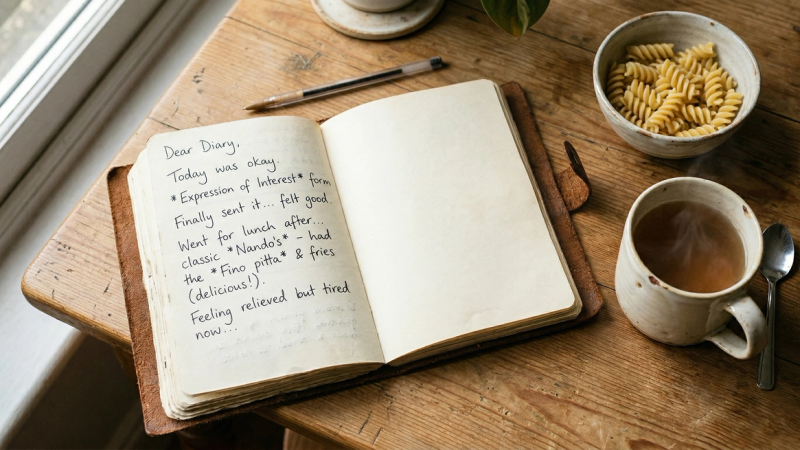 Dear Diary,
Today was okay.
*Expression of Interest* form
Finally sent it... felt good.
Went for lunch after...
classic *Nando's* – had
the *Fino pitta* & fries
(delicious!).
Feeling relieved but tired
now...